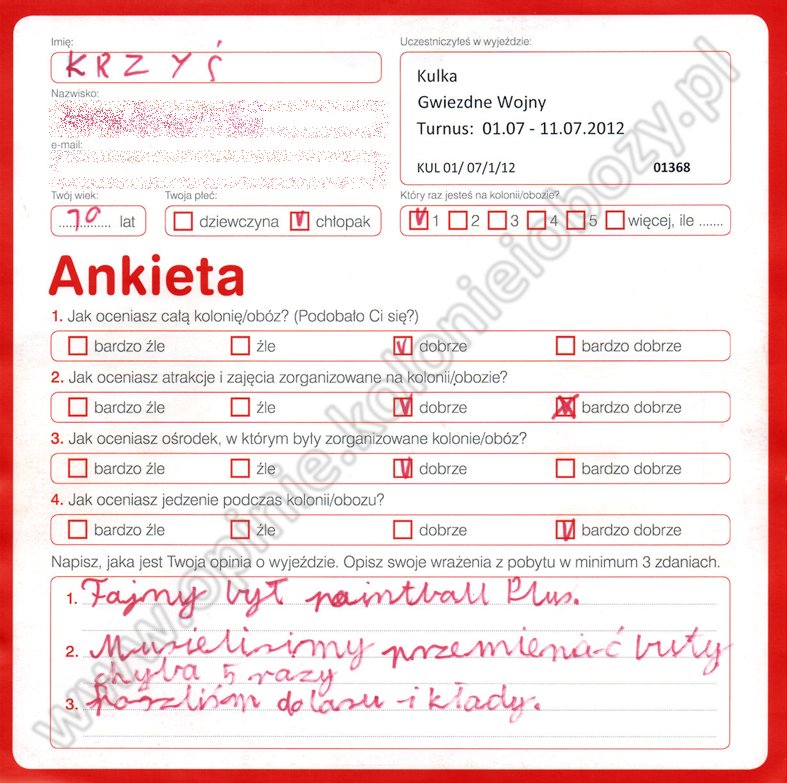 Imię:
KRZYŚ
Nazwisko:
e-mail:
Uczestniczyłeś w wyjeździe:
Kulka
Gwiezdne Wojny
Turnus: 01.07 - 11.07.2012
KUL 01/ 07/1/12 01368
Twój wiek:
10 lat
Twoja płeć:
dziewczyna chłopak
Który raz jesteś na kolonii/obozie?
1 2 3 4 5 więcej, ile .......
Ankieta
1. Jak oceniasz całą kolonię/obóz? (Podobało Ci się?)
bardzo źle źle dobrze bardzo dobrze
2. Jak oceniasz atrakcje i zajęcia zorganizowane na kolonii/obozie?
bardzo źle źle dobrze bardzo dobrze
3. Jak oceniasz ośrodek, w którym były zorganizowane kolonie/obóz?
bardzo źle źle dobrze bardzo dobrze
4. Jak oceniasz jedzenie podczas kolonii/obozu?
bardzo źle źle dobrze bardzo dobrze
Napisz, jaka jest Twoja opinia o wyjeździe. Opisz swoje wrażenia z pobytu w minimum 3 zdaniach.
1. Fajny był paintball Plus.
2. Musielisimy przemieniać buty
chyba 5 razy
3. Poszliśm do lasu i kłady.
www.opinie.kolonieiobozy.pl